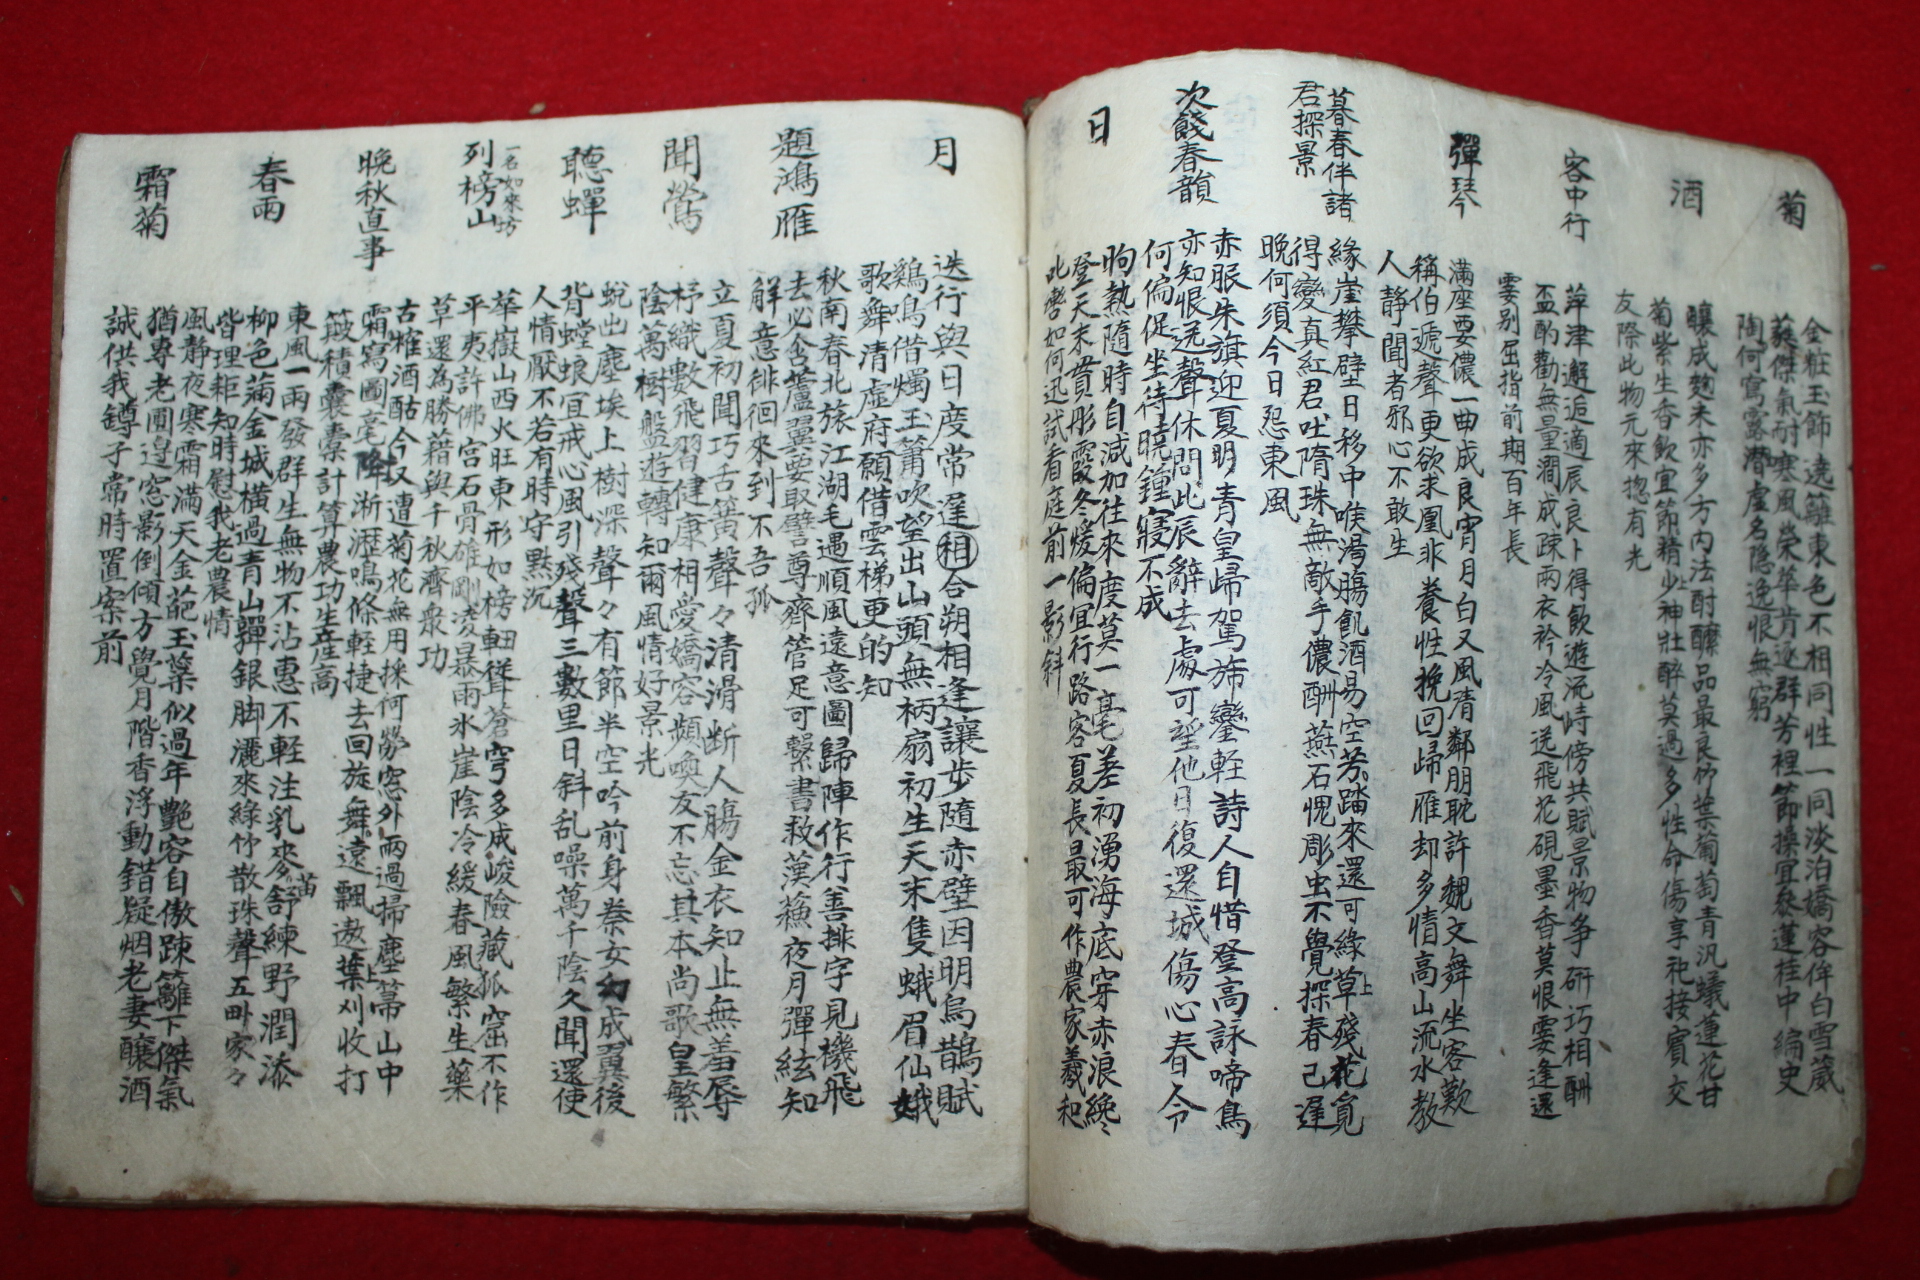 菊
金粧玉飾遶籬東色不相同性一同淡泊橋容侔白雪葳
蕤傑氣耐寒風榮華肯逐群芳裡節操宜參蓮桂中編史
陶何寫露潛虛名隐逸恨無窮
酒
釀成麴米亦多方內法酎醿品最良竹葉葡萄青汎蟻蓮花甘
菊紫生香飲宜節精少神壯醉莫過多性命傷享祀接賓交
友際此物元來揔有光
客中行
萍津邂逅適辰良卜得飲遊流峙傍共賦景物爭硏巧相酬
盃酌勸無量澗成疎雨衣衿冷風送飛花硯墨香莫恨霎逢還
霎别屈指前期百年長
彈琴
滿座要儂一曲成良宵月白又風清鄰朋耽許覩文舞坐客歎
稱伯遞聲更欲求凰非養性挽回歸雁却多情高山流水教
人靜聞者邪心不敢生
暮春伴諸
君探景
緣崖攀壁日移中喉渴膓飢酒易空芳踏來還可緣草上殘花覓
得變真紅君吐隋珠無敵手儂酬燕石愧彫虫不覺探春己遲
晚何須今日怨東風
次餞春韻
赤脤朱旗迎夏明青皇歸駕旆鑾輕詩人自惜登高詠啼鳥
亦知恨送聲休問此辰辭去處可望他日復還城傷心春令
何偏促坐待曉鐘寢不成
日
昫熱隨時自減加往來度莫一毫差初湧海底穿赤浪纔
登天末貫彤霞冬煖偏宜行路客夏長最可作農家羲和
此轡如何迅試看庭前一影斜
月
迭行與日度常遲相合朔相逢讓步隨赤壁因明烏鵲賦
鷄鳴借燭玉簫吹望出山頭無柄扇初生天末隻蛾眉仙娥
歌舞清虛府願借雲梯更的知
題鴻雁
秋南春北旅江湖毛遇順風遠意圖歸陣作行善排字見機飛
去必含蘆翼要取譬尊齋管足可繫書救漢蘓夜月彈絃知
解意徘徊來到不吾孤
聞鶯
立夏初聞巧舌簧聲々清滑断人膓金衣知止無羞辱
杼織數飛習健康相愛嬌容頻喚友不忘其本尚歌皇繁
陰萬樹盤遊轉知爾風情好景光
聽蟬
蛻出塵埃上樹深聲々有節半空吟前身桊女幻成翼後
背螳蜋宜戒心風引殘聲三數里日斜乱噪萬千陰久聞還使
人情厭不若有時守黙沉
列榜山
一名如來坊
華嶽山西火旺東形如榜軸聳蒼穹多成峻險藏狐窟不作
平夷許佛宮石骨雄剛凌暴雨氷崖陰冷緩春風繁生藥
草還為勝藉與千秋濟衆功
晚秋直事
古㩴酒酤今又遭菊花無用採何勞窓外雨過掃塵箒山中
霜寫圖毫降淅瀝鳴條軽捷去回旋舞遠飄遨葉上刈收打
簸積囊橐計算農功生產高
春雨
東風一雨發群生無物不沾惠不軽注乳麥苗舒練野潤添
柳色蒲金城橫過青山軃銀脚灑來綠竹散珠聲五畊家々
皆理耟知時慰我老農情
霜菊
風靜夜寒霜滿天金葩玉蘂似過年艷容自傲踈籬下傑氣
猶專老圃邊窓影倒傾方覺月階香浮動錯疑烟老妻釀酒
誠供我罇子常時置案前